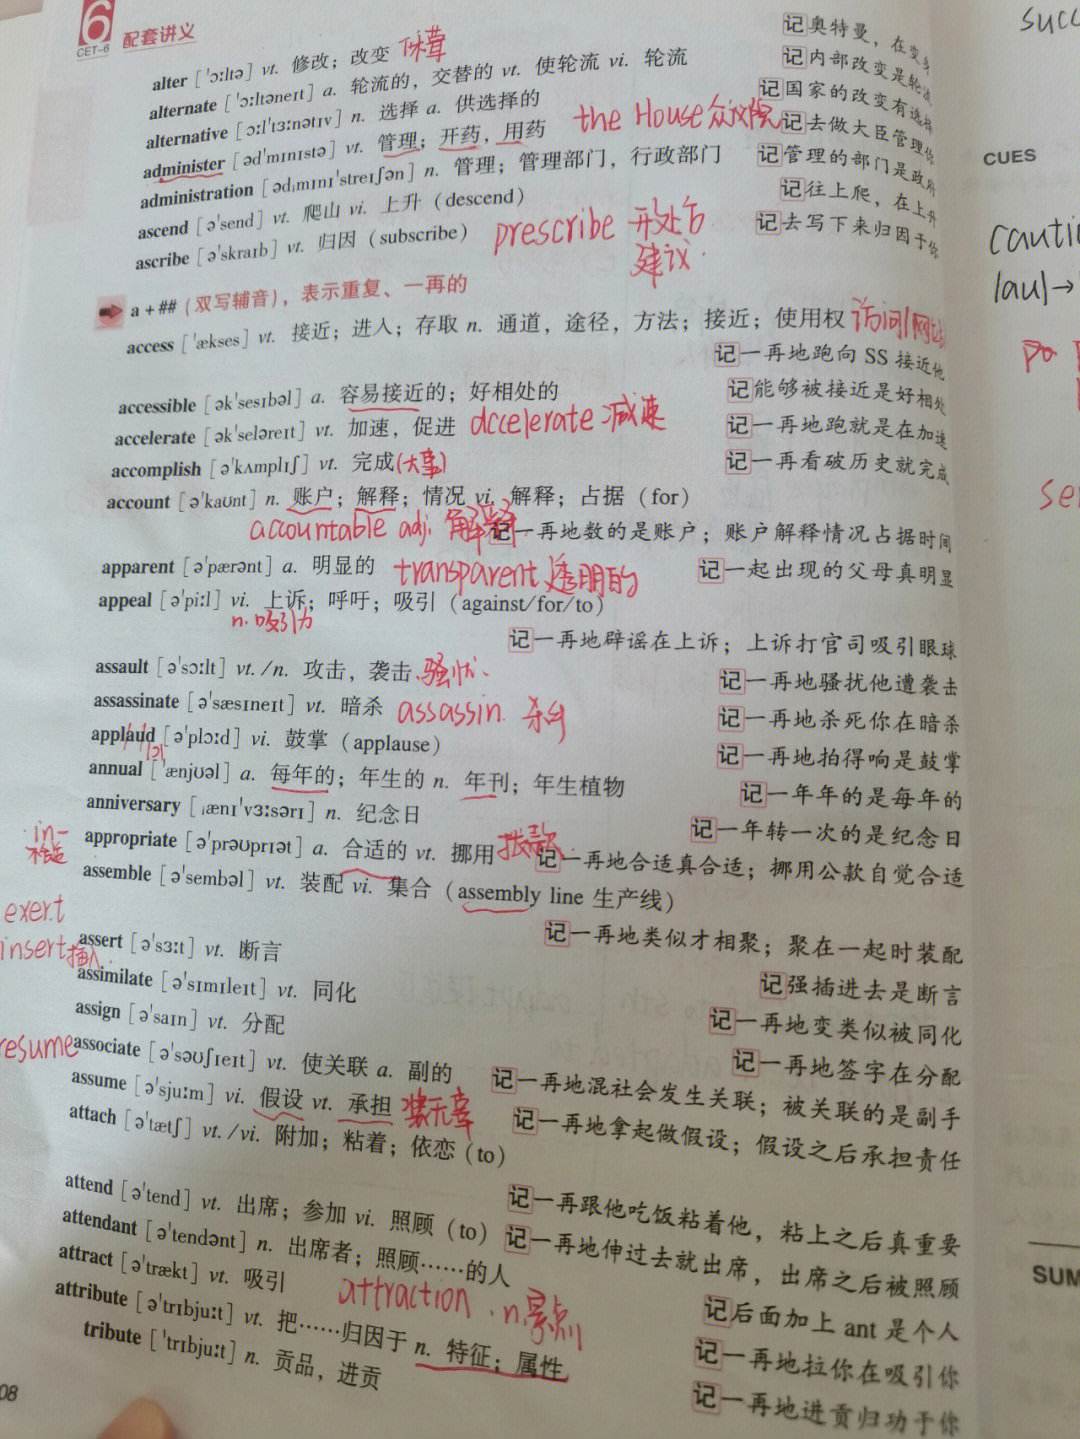 6
CET-6
配套讲义
alter [ˈɔːltə] vt. 修改；改变
记奥特曼，在变身
alternate [ˈɔːltəneɪt] a. 轮流的，交替的 vt. 使轮流 vi. 轮流
记内部改变是轮流
alternative [ɔːlˈtɜːnətɪv] n. 选择 a. 供选择的
记国家的改变有选择
administer [ədˈmɪnɪstə] vt. 管理；开药，用药 the House 众议院
记去做大臣管理你
administration [ədˌmɪnɪˈstreɪʃən] n. 管理；管理部门，行政部门
记管理的部门是政府
ascend [əˈsend] vt. 爬山 vi. 上升 (descend)
记往上爬，在上升
ascribe [əˈskraɪb] vt. 归因 (subscribe) prescribe 开处方
记去写下来归因于你
建议
a + ## (双写辅音)，表示重复、一再的
access [ˈækses] vt. 接近；进入；存取 n. 通道，途径，方法；接近；使用权 访问
记一再地跑向 SS 接近他
accessible [əkˈsesɪbəl] a. 容易接近的；好相处的
记能够被接近是好相处
accelerate [əkˈseləreɪt] vt. 加速，促进 dccelerate 减速
记一再地跑就是在加速
accomplish [əˈkʌmplɪʃ] vt. 完成 (大事)
记一再看破历史就完成
account [əˈkaʊnt] n. 账户；解释；情况 vi. 解释；占据 (for)
accountable adj. 解释
记一再地数的是账户；账户解释情况占据时间
apparent [əˈpærənt] a. 明显的 transparent 透明的
记一起出现的父母真明显
appeal [əˈpiːl] vi. 上诉；呼吁；吸引 (against/for/to)
n. 吸引力
记一再地辟谣在上诉；上诉打官司吸引眼球
assault [əˈsɔːlt] vt./n. 攻击，袭击 骚扰
记一再地骚扰他遭袭击
assassinate [əˈsæsɪneɪt] vt. 暗杀 assassin
记一再地杀死你在暗杀
applaud [əˈplɔːd] vi. 鼓掌 (applause)
记一再地拍得响是鼓掌
annual [ˈænjʊəl] a. 每年的；年生的 n. 年刊；年生植物
记一年年的是每年的
anniversary [ˌænɪˈvɜːsərɪ] n. 纪念日
记一年转一次的是纪念日
in-
appropriate [əˈprəʊprɪət] a. 合适的 vt. 挪用 拨款
记一再地合适真合适；挪用公款自觉合适
assemble [əˈsembəl] vt. 装配 vi. 集合 (assembly line 生产线)
记一再地类似才相聚；聚在一起时装配
exert
insert 插入
assert [əˈsɜːt] vt. 断言
记强插进去是断言
assimilate [əˈsɪmɪleɪt] vt. 同化
记一再地变类似被同化
assign [əˈsaɪn] vt. 分配
记一再地签字在分配
resume
associate [əˈsəʊʃɪeɪt] vt. 使关联 a. 副的
记一再地混社会发生关联；被关联的是副手
assume [əˈsjuːm] vi. 假设 vt. 承担 装无辜
记一再地拿起做假设；假设之后承担责任
attach [əˈtætʃ] vt./vi. 附加；粘着；依恋 (to)
记一再跟他吃饭粘着他，粘上之后真重要
attend [əˈtend] vt. 出席；参加 vi. 照顾 (to)
记一再地伸过去就出席，出席之后被照顾
attendant [əˈtendənt] n. 出席者；照顾……的人
记后面加上 ant 是个人
attract [əˈtrækt] vt. 吸引 attraction n. 景点
记一再地拉你在吸引你
attribute [əˈtrɪbjuːt] vt. 把……归因于 n. 特征；属性
记一再地进贡归功于你
tribute [ˈtrɪbjuːt] n. 贡品，进贡
08
succ
CUES
cauti
/au/→
po
se
SUM